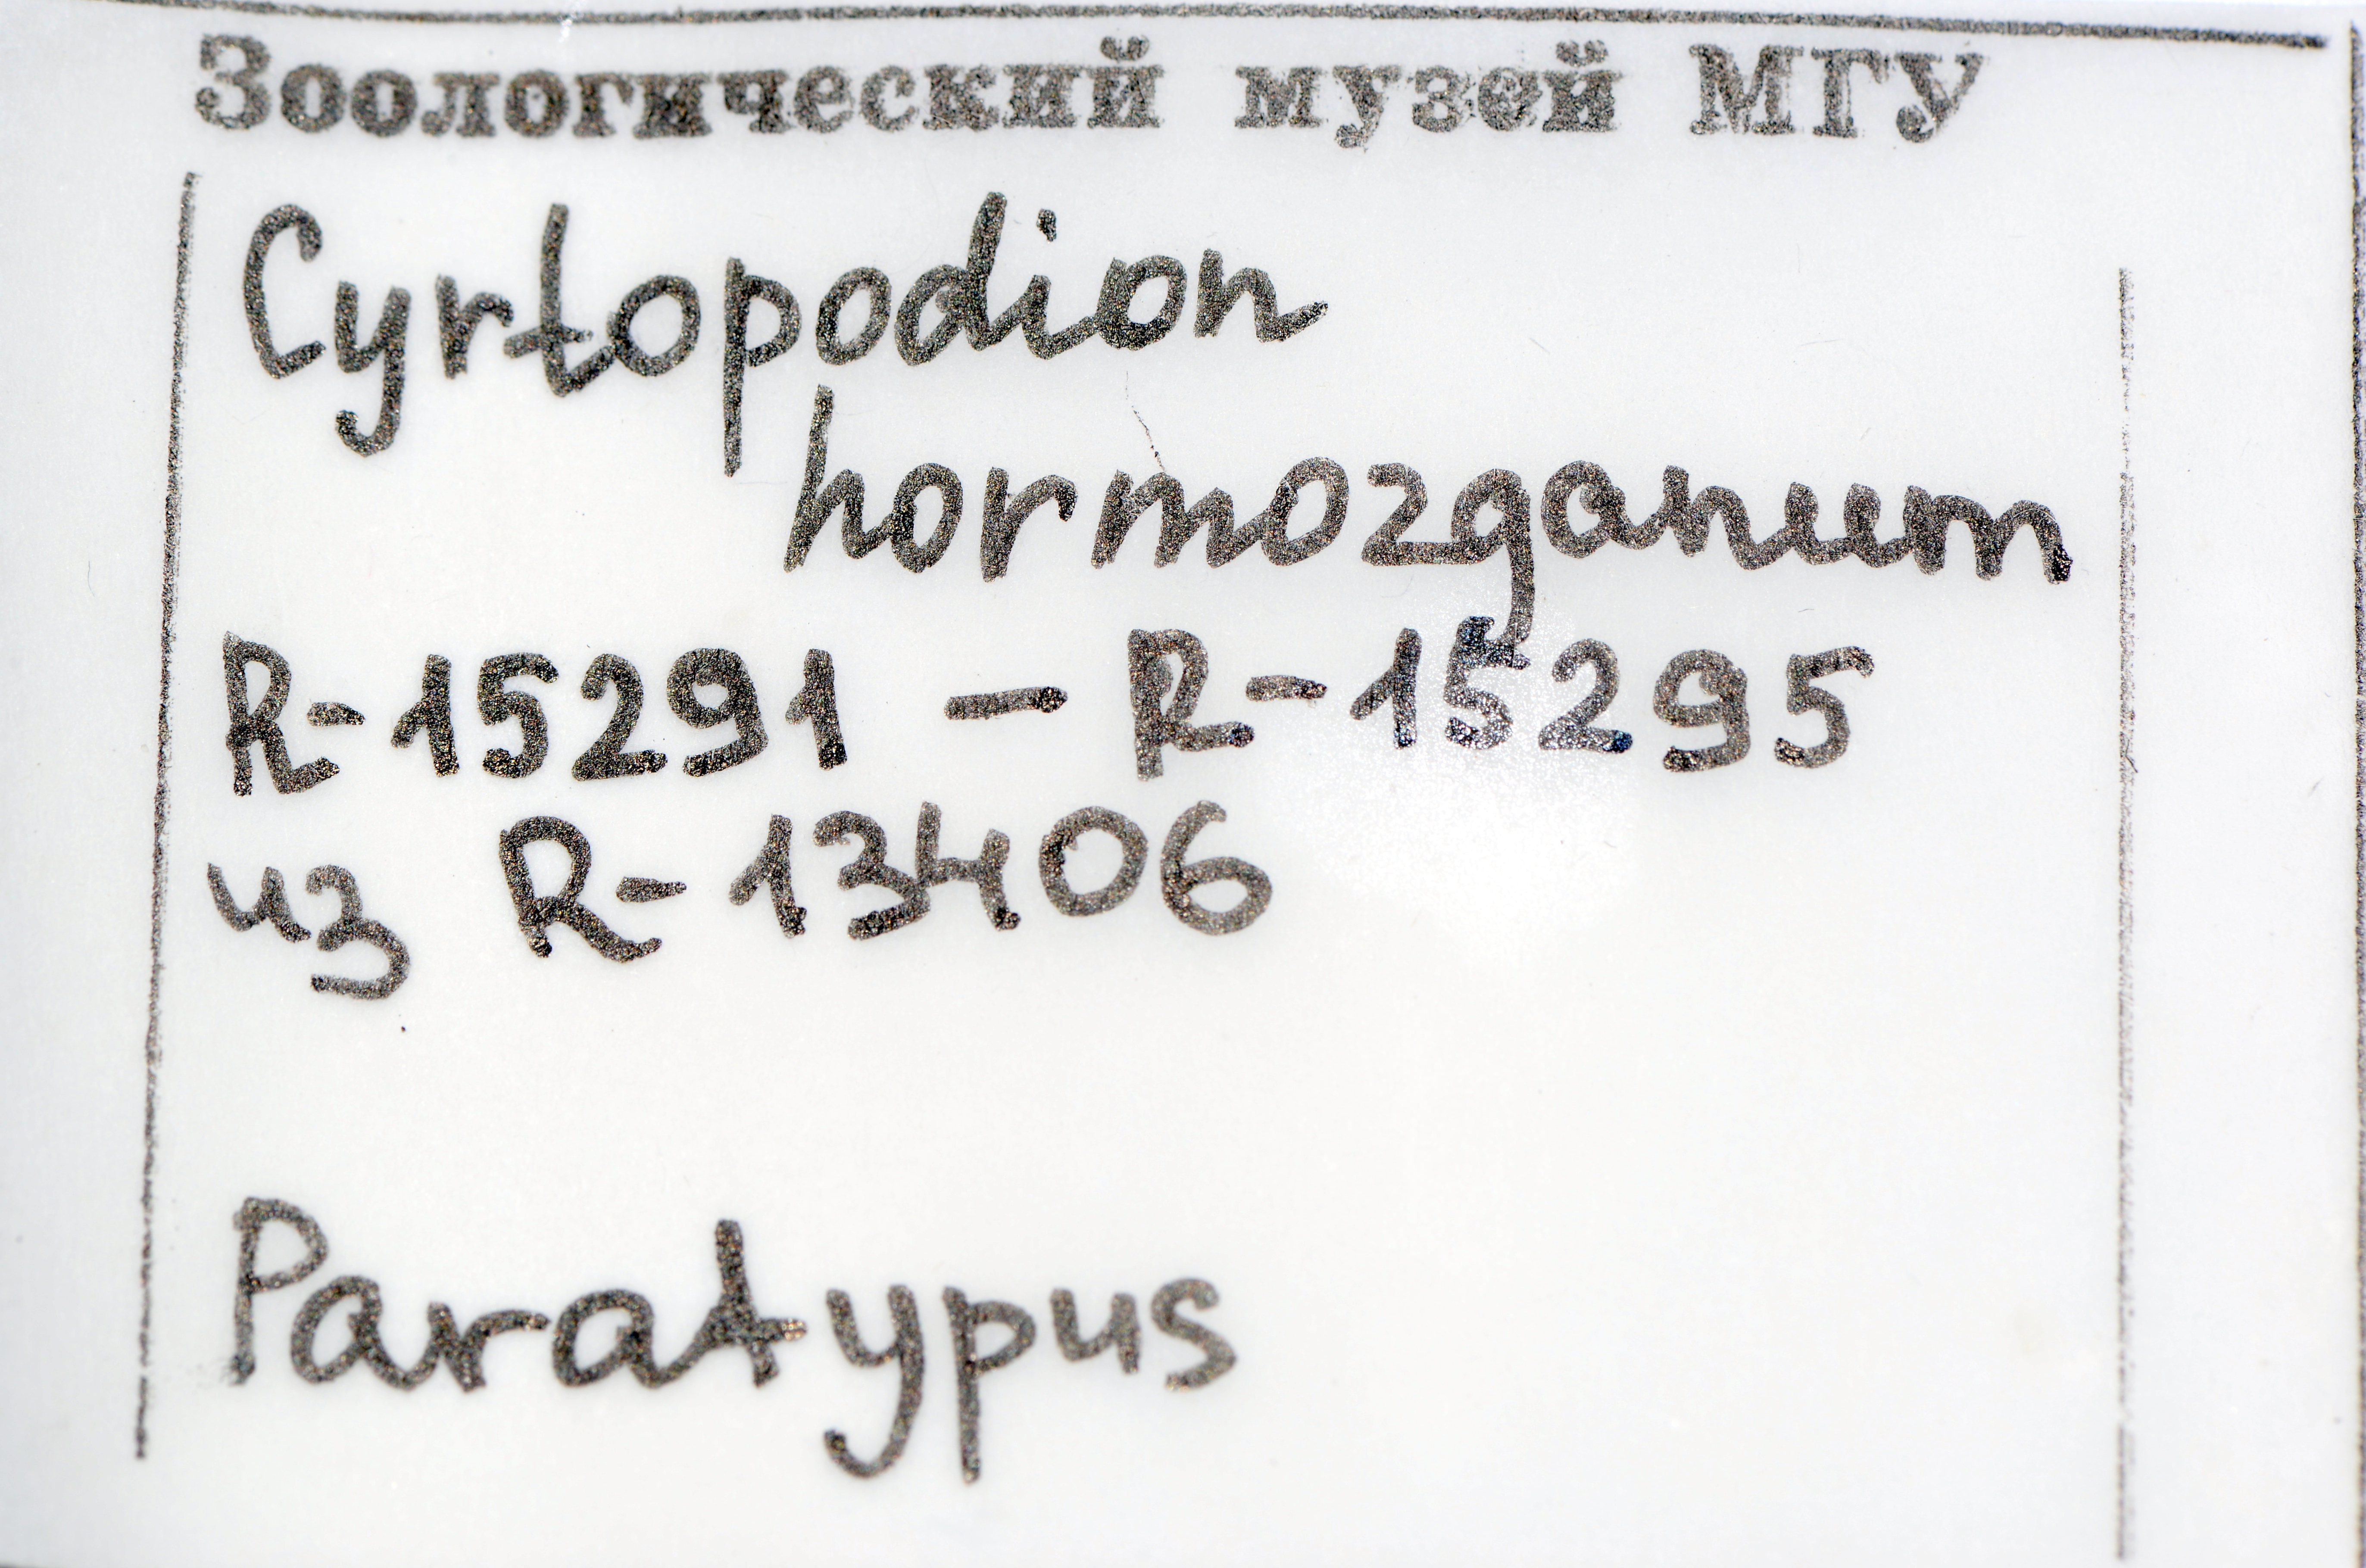 Зоологический музей МГУ
Cyrtopodion
hormozganum
R-15291 — R-15295
из R-13406
Paratypus